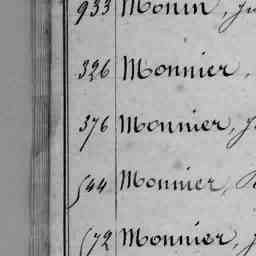 933 Monin, J
326 Monnier,
376 Monnier, J
544 Monnier,
672 Monnier, J